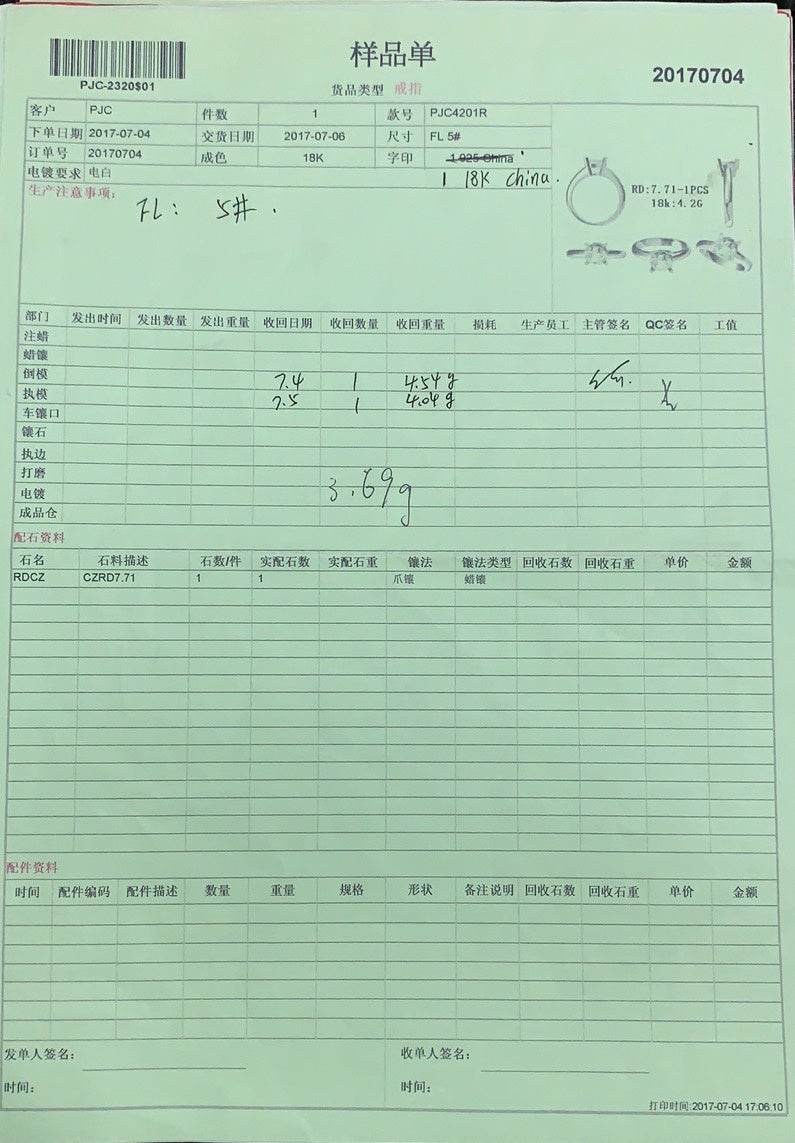 样品单
PJC-2320$01
货品类型 戒指
20170704
客户 PJC 件数 1 款号 PJC4201R
下单日期 2017-07-04 交货日期 2017-07-06 尺寸 FL 5#
订单号 20170704 成色 18K 字印 1 925 China
电镀要求 电白 1 18K china.
生产注意事项:
FL: 5#.
RD:7.71-1PCS
18k:4.2G
部门 发出时间 发出数量 发出重量 收回日期 收回数量 收回重量 损耗 生产员工 主管签名 QC签名 工值
注蜡
蜡镶
倒模 7.4 1 4.54g
执模 7.5 1 4.04g
车镶口
镶石
执边
打磨
电镀 3.69g
成品仓
配石资料
石名 石料描述 石数/件 实配石数 实配石重 镶法 镶法类型 回收石数 回收石重 单价 金额
RDCZ CZRD7.71 1 1 爪镶 蜡镶
配件资料
时间 配件编码 配件描述 数量 重量 规格 形状 备注说明 回收石数 回收石重 单价 金额
发单人签名: 收单人签名:
时间: 时间:
打印时间:2017-07-04 17:06:10